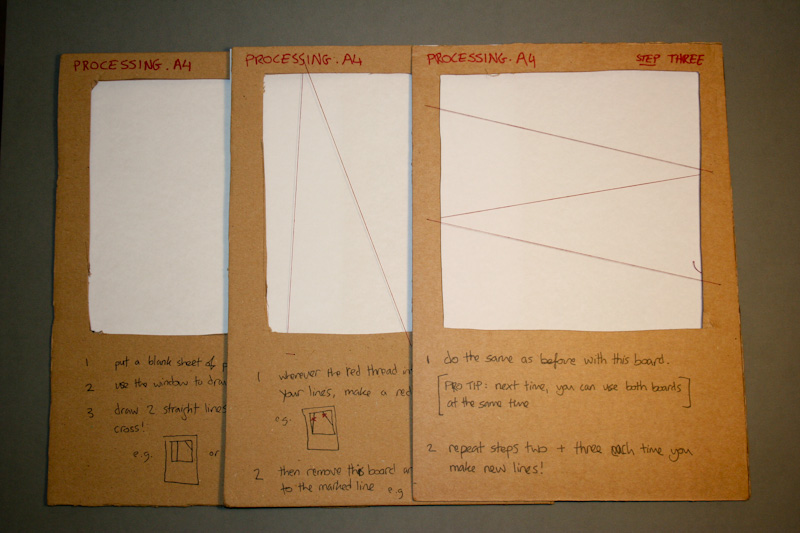 PROCESSING.A4
1 put a blank sheet of
2 use the window to draw
3 draw 2 straight lines
cross!
e.g. or
PROCESSING.A4
1 wherever the red thread
your lines, make a red
e.g.
2 then remove this board
to the marked line e.g
PROCESSING.A4
STEP THREE
1 do the same as before with this board.
[PRO TIP: next time, you can use both boards
at the same time]
2 repeat steps two + three each time you
make new lines!